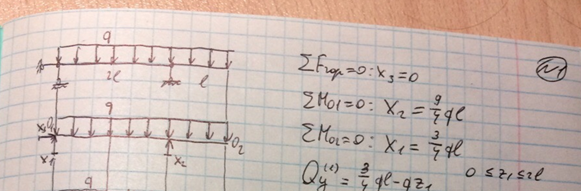 q
2l
l
q
x₃ O₁
O₂
x₁
x₂
q
№1
ΣFгор=0: x₃=0
ΣMo1=0: X₂ = 9/4 ql
ΣMo2=0: X₁ = 3/4 ql
Qy⁽¹⁾ = 3/4 ql - qz₁ 0 ≤ z₁ ≤ 2l